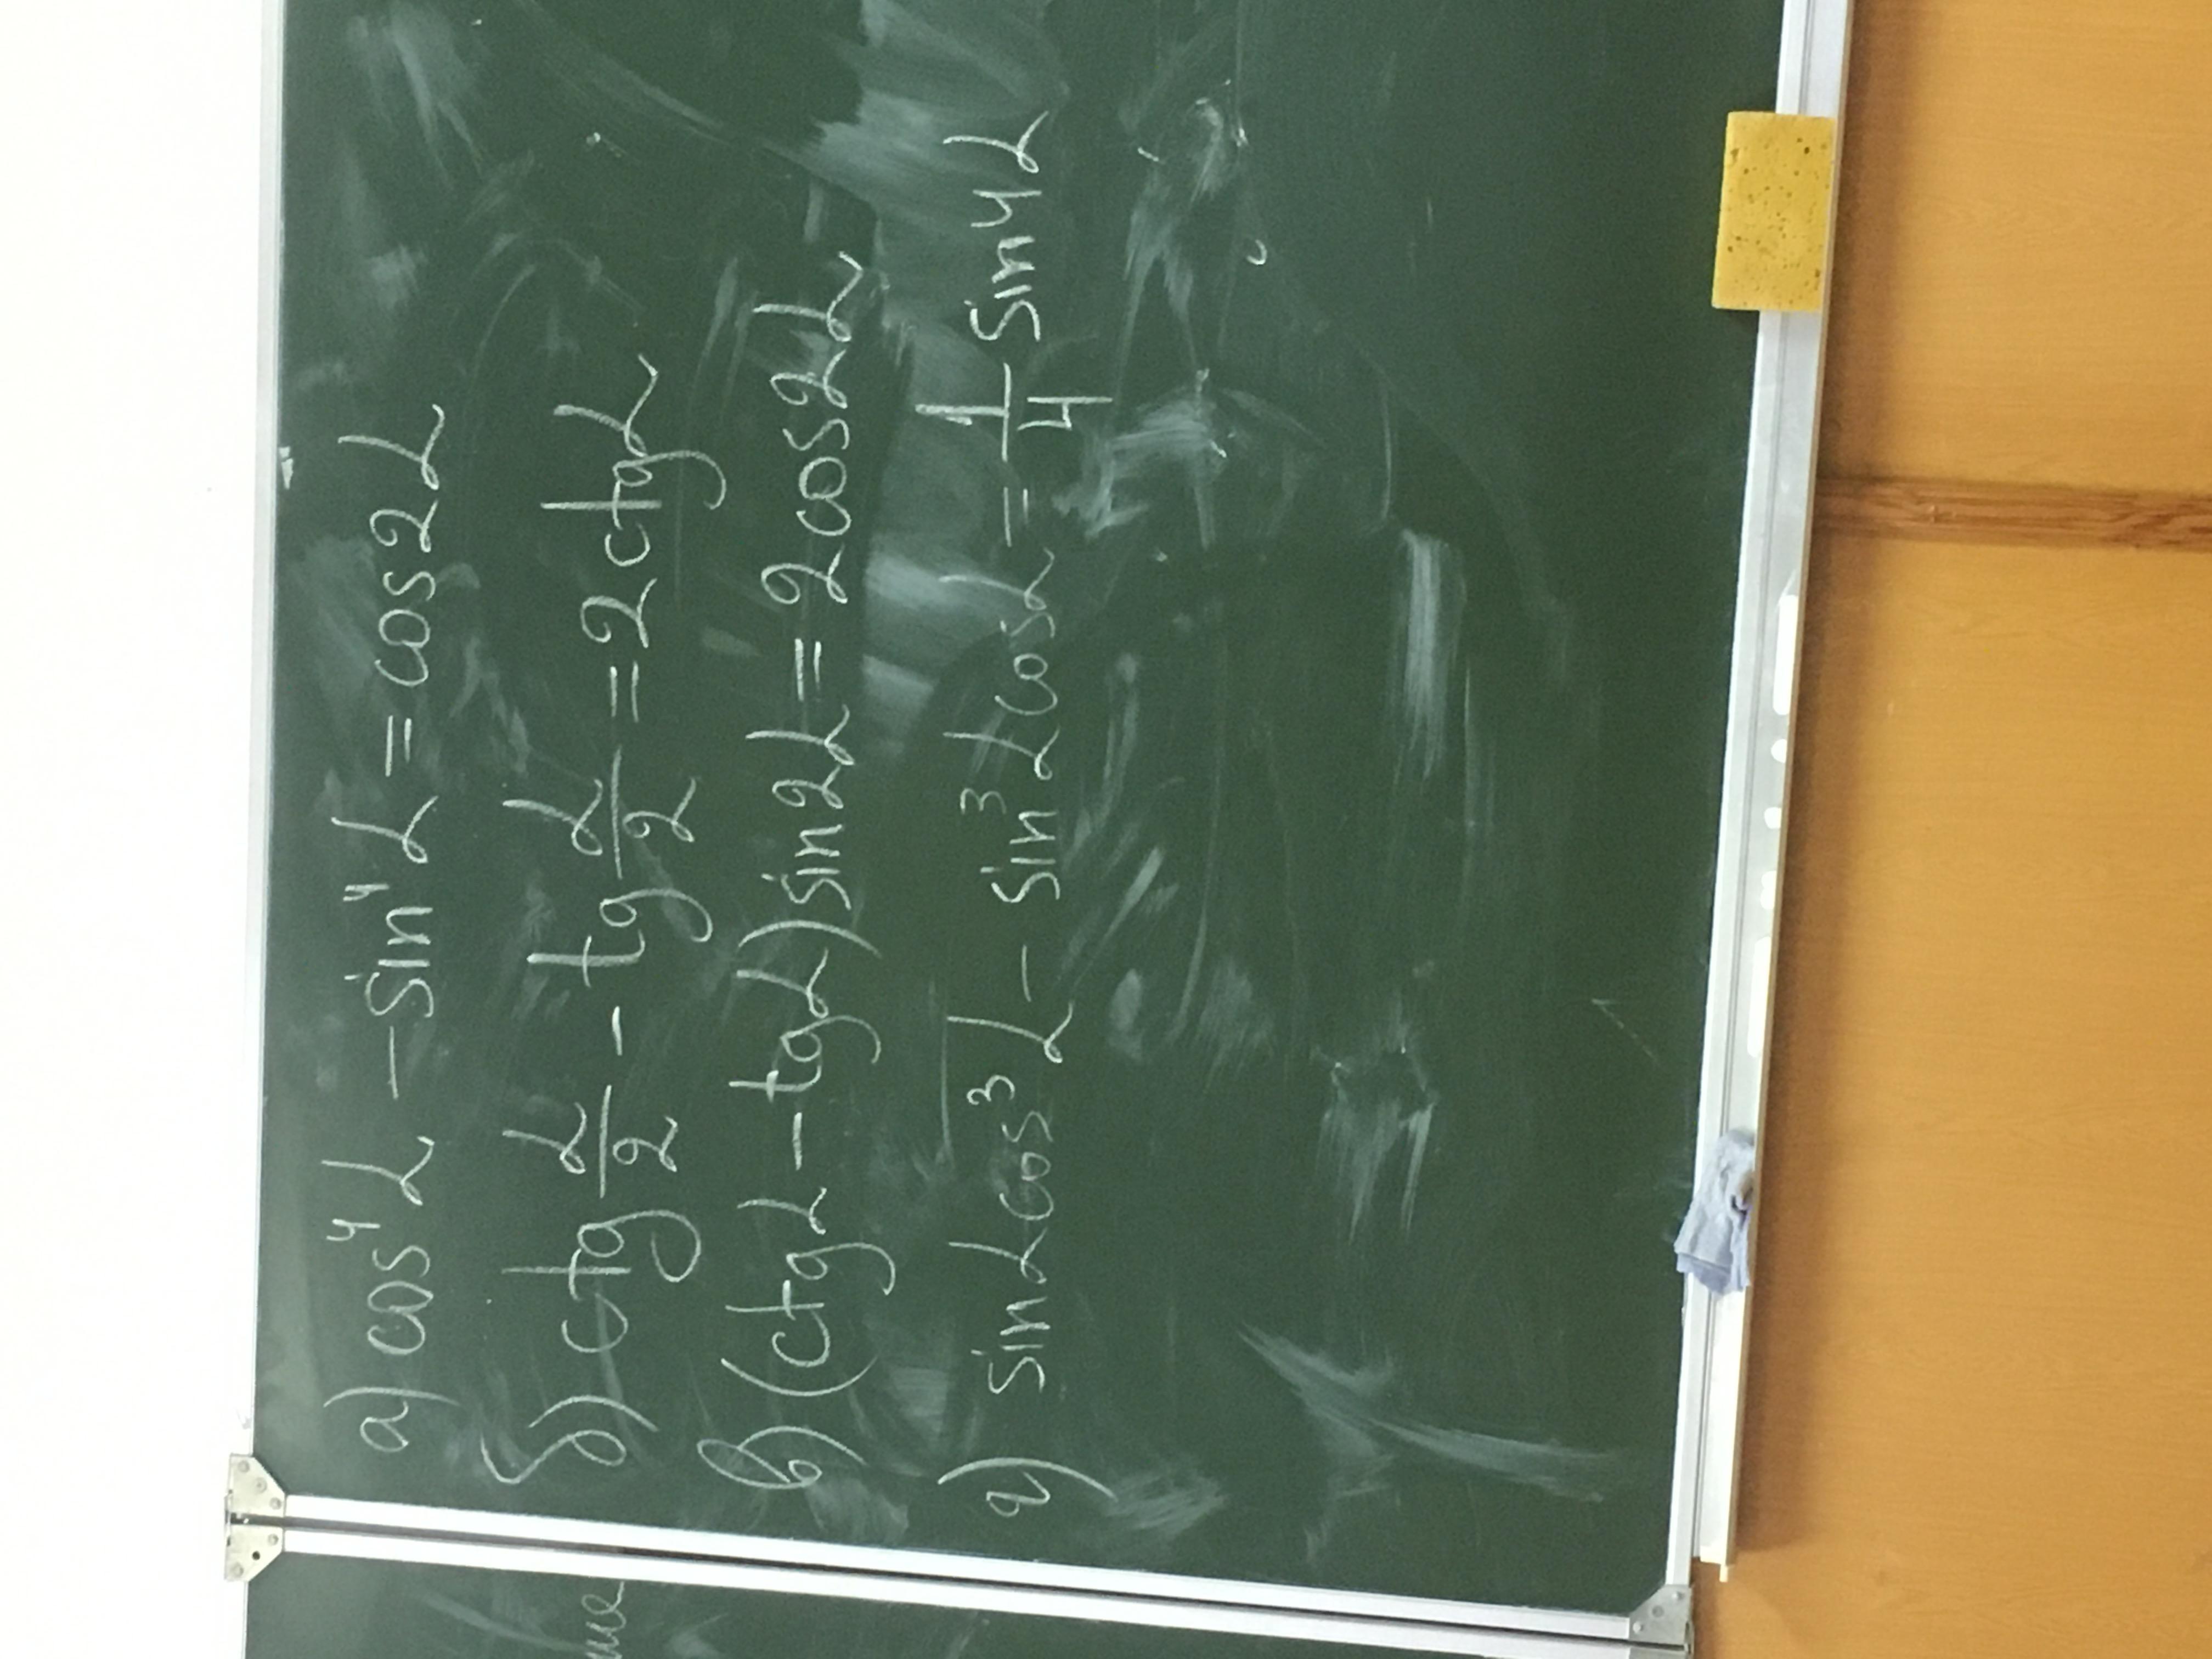 а) cos⁴α − sin⁴α = cos2α
б) ctg α/2 − tg α/2 = 2ctgα
в) (ctgα − tgα)sin2α = 2cos2α
г) sinαcos³α − sin³αcosα = 1/4 sin4α